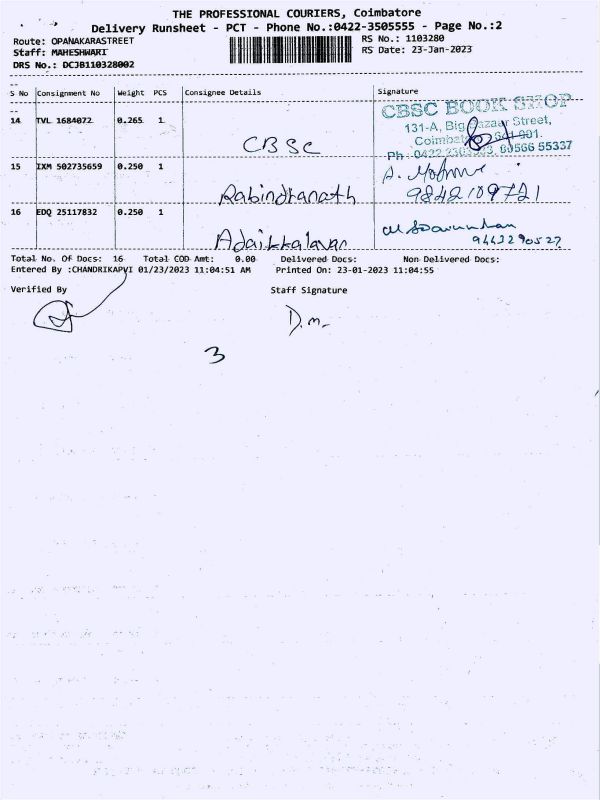 THE PROFESSIONAL COURIERS, Coimbatore
Delivery Runsheet - PCT - Phone No.:0422-3505555 - Page No.:2
Route: OPANAKARASTREET
RS No.: 1103280
Staff: MAHESHWARI
RS Date: 23-Jan-2023
DRS No.: DCJB110328002
S No Consignment No Weight PCS Consignee Details Signature
14 TVL 1684072 0.265 1
CBSC
CBSC BOOK SHOP
131-A, Big Bazaar Street,
Coimbatore 641 001.
Ph : 0422 80566 55337
15 IXM 502735659 0.250 1
Rabindhanath
9842109721
16 EDQ 25117832 0.250 1
Adaikkalavan
9443290527
Total No. Of Docs: 16 Total COD Amt: 0.00 Delivered Docs: Non Delivered Docs:
Entered By :CHANDRIKAPVI 01/23/2023 11:04:51 AM Printed On: 23-01-2023 11:04:55
Verified By Staff Signature
D.m.
3